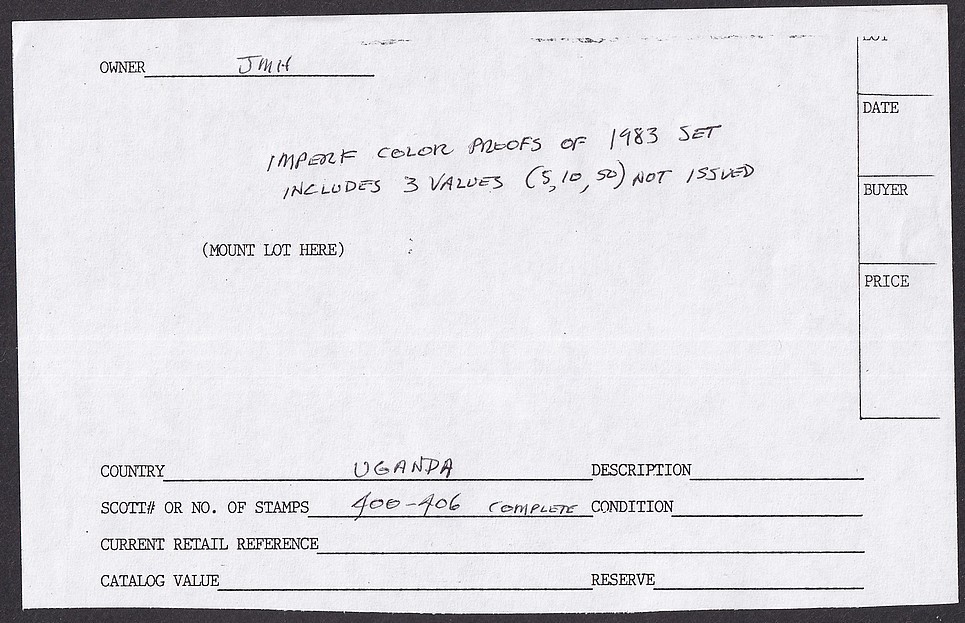 OWNER JMH
IMPERF COLOR PROOFS OF 1983 SET
INCLUDES 3 VALUES (5,10,50) NOT ISSUED
(MOUNT LOT HERE)
LOT
DATE
BUYER
PRICE
COUNTRY UGANDA DESCRIPTION
SCOTT# OR NO. OF STAMPS 400-406 COMPLETE CONDITION
CURRENT RETAIL REFERENCE
CATALOG VALUE RESERVE